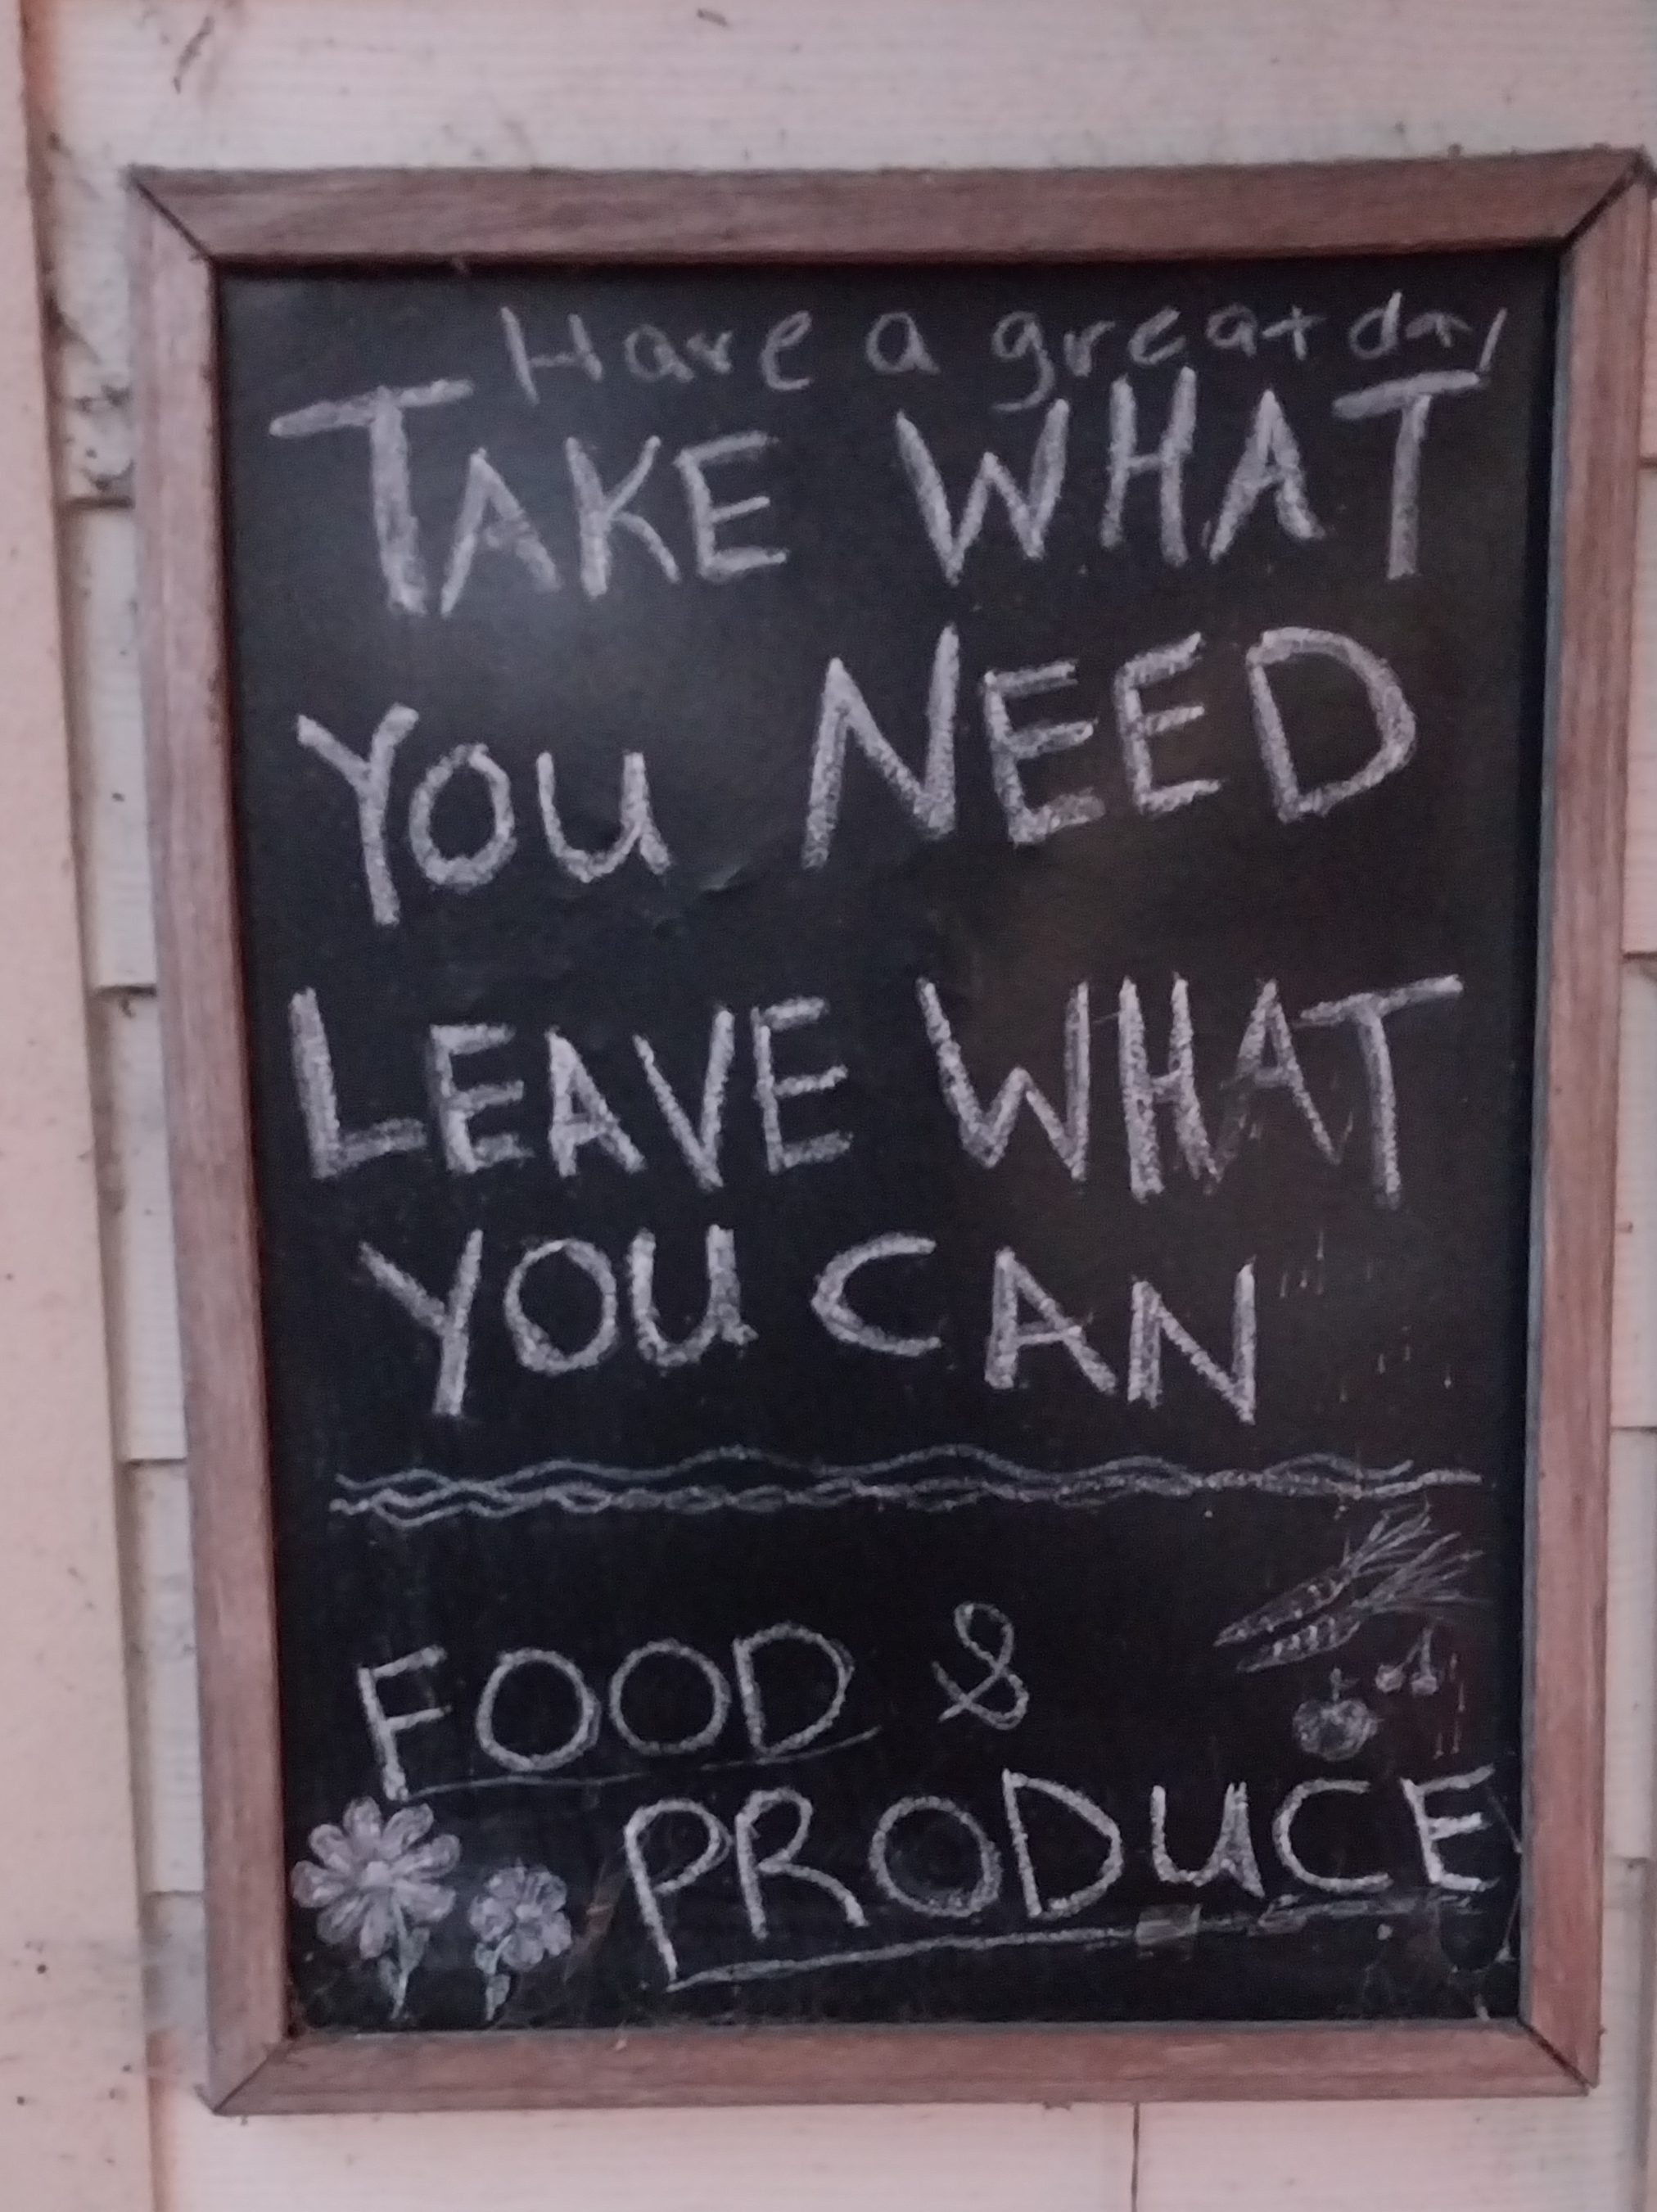 Have a great day
TAKE WHAT
YOU NEED
LEAVE WHAT
YOU CAN
FOOD &
PRODUCE